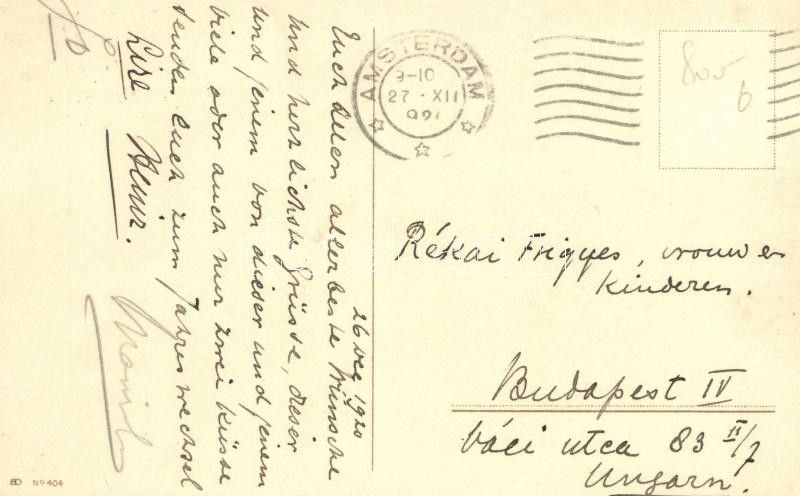 26 Dec 1920
Euch Allen allerbeste Wünsche
und herzlichste Grüsse, dieser
und jenem von dieser und jenem
viele oder auch nur zwei Küsse
senden Euch zum Jahreswechsel
Lize Heinz.
AMSTERDAM
9-10
27 · XII
Rékai Frigyes, vrouw en
Kinderen.
Budapest IV
Váci utca 83 II/7
Ungarn.
800
6
Nº 404